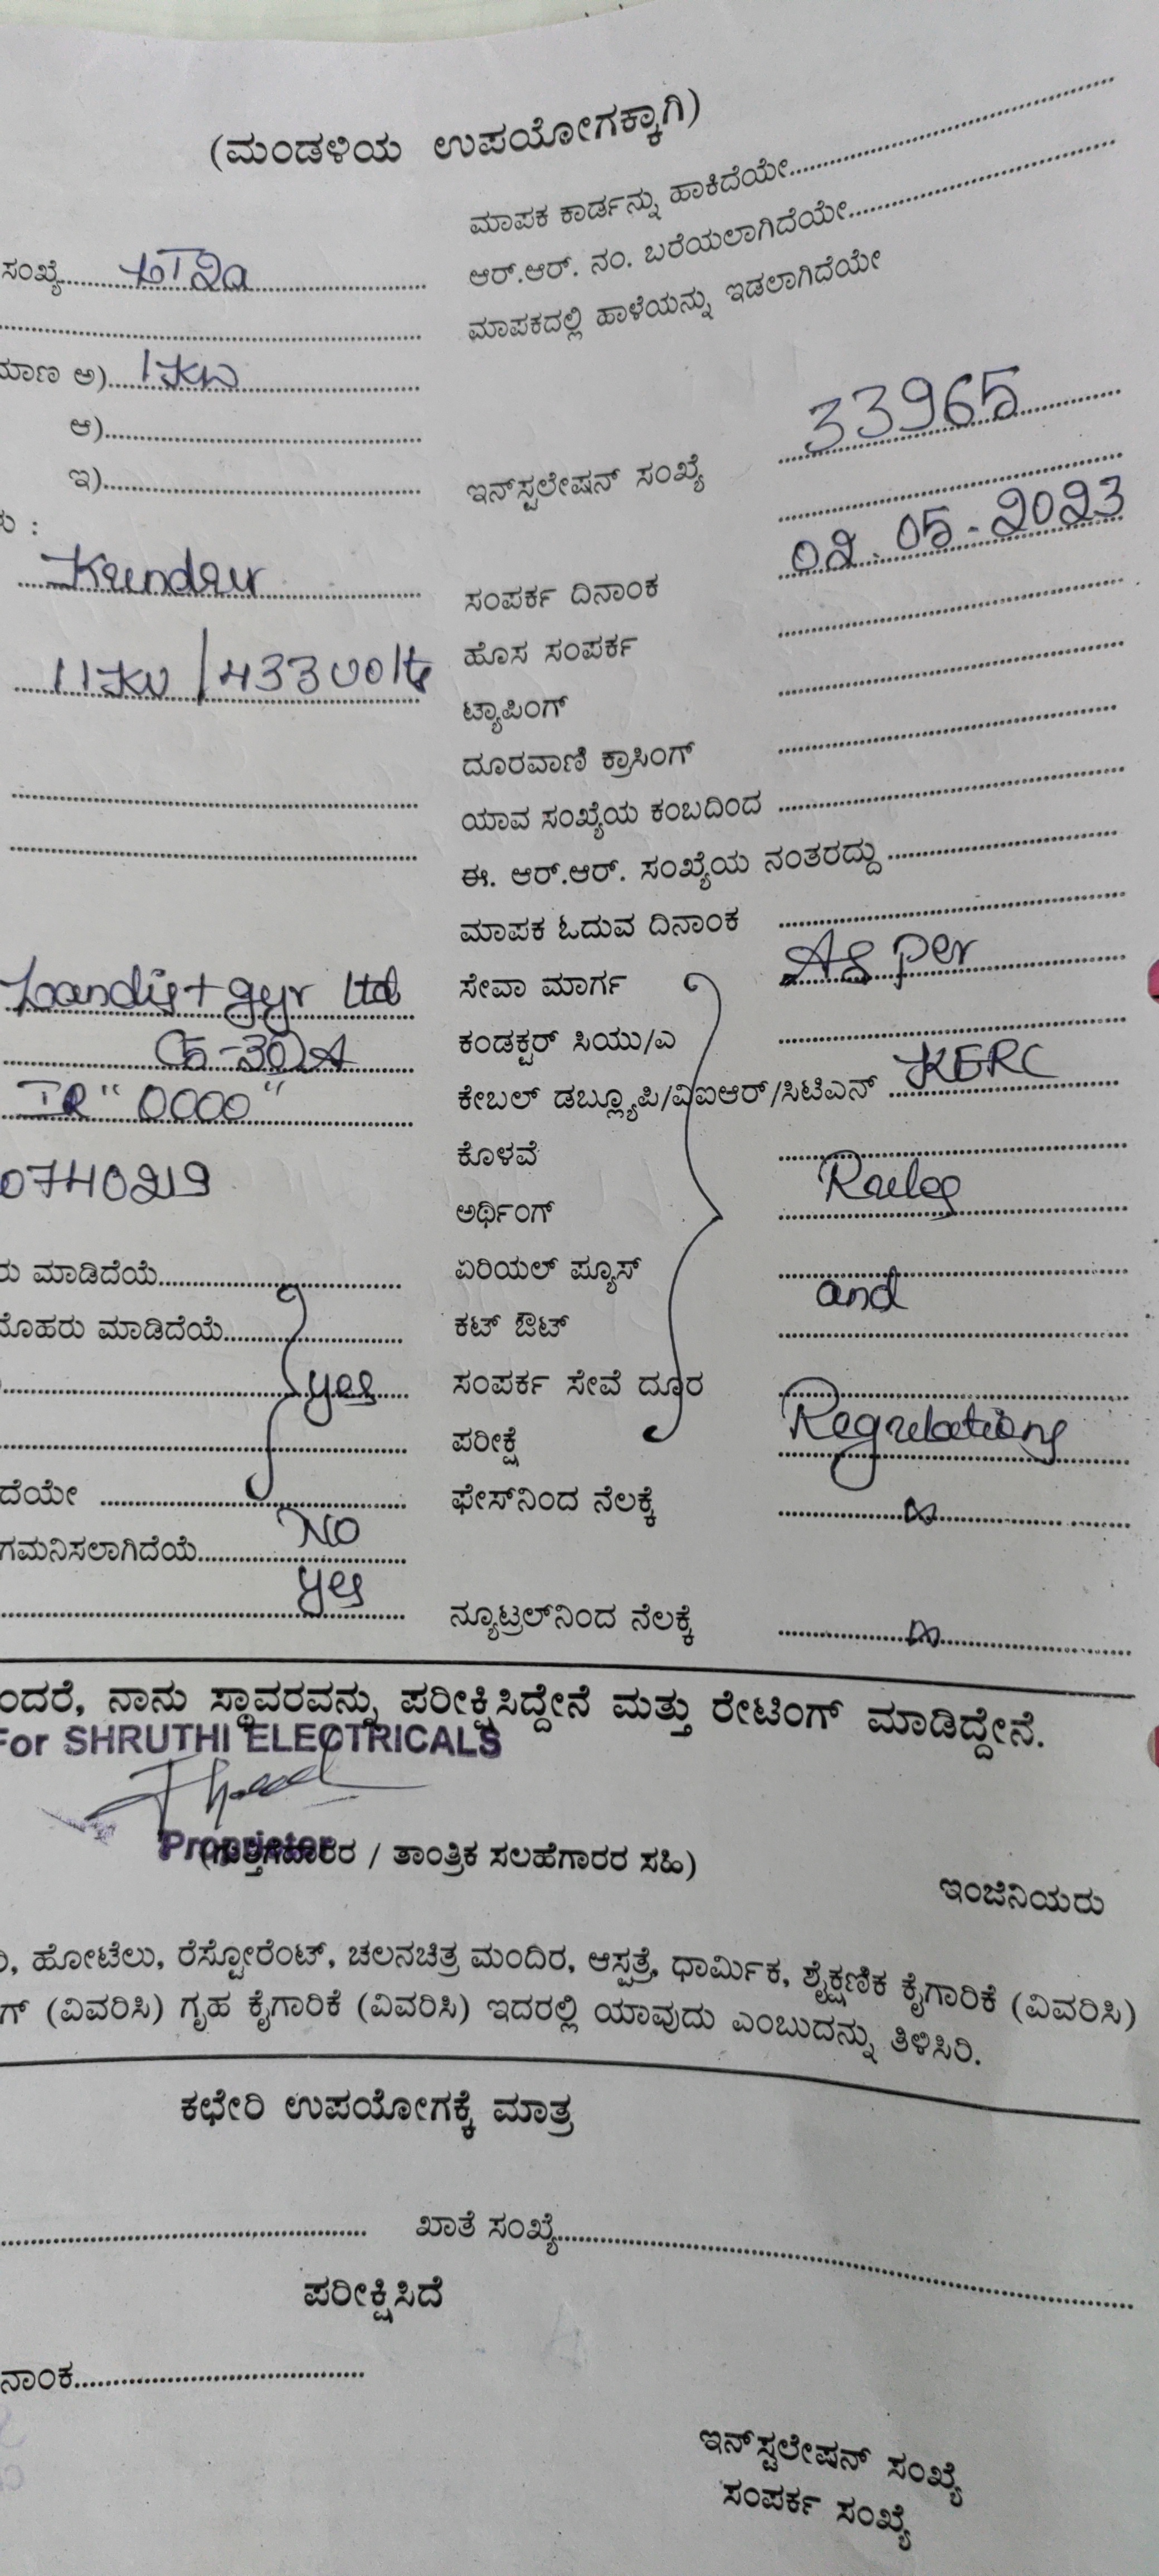 (ಮಂಡಳಿಯ ಉಪಯೋಗಕ್ಕಾಗಿ)
ಮಾಪಕ ಕಾರ್ಡನ್ನು ಹಾಕಿದೆಯೇ
ಸಂಖ್ಯೆ LT2a
ಆರ್.ಆರ್. ನಂ. ಬರೆಯಲಾಗಿದೆಯೇ
ಮಾಪಕದಲ್ಲಿ ಹಾಳೆಯನ್ನು ಇಡಲಾಗಿದೆಯೇ
ಮಾಣ ಅ) 1KW
ಆ)
ಇ)
ಇನ್‌ಸ್ಟಲೇಷನ್ ಸಂಖ್ಯೆ 33965
02.05-2023
ಸಂಪರ್ಕ ದಿನಾಂಕ
ಹೊಸ ಸಂಪರ್ಕ
11KV/433 volts
ಟ್ಯಾಪಿಂಗ್
ದೂರವಾಣಿ ಕ್ರಾಸಿಂಗ್
ಯಾವ ಸಂಖ್ಯೆಯ ಕಂಬದಿಂದ
ಈ. ಆರ್.ಆರ್. ಸಂಖ್ಯೆಯ ನಂತರದ್ದು
ಮಾಪಕ ಓದುವ ದಿನಾಂಕ
Landis+gyr Ltd ಸೇವಾ ಮಾರ್ಗ As per
05-30A ಕಂಡಕ್ಟರ್ ಸಿಯು/ಎ
IR "0000" ಕೇಬಲ್ ಡಬ್ಲ್ಯೂಪಿ/ವಿಐಆರ್/ಸಿಟಿಎನ್ KERC
ಕೊಳವೆ
0740219 ಅರ್ಥಿಂಗ್ Rules
ರು ಮಾಡಿದೆಯೆ ಏರಿಯಲ್ ಫ್ಯೂಸ್
ಮೊಹರು ಮಾಡಿದೆಯೆ ಕಟ್ ಔಟ್ and
yes ಸಂಪರ್ಕ ಸೇವೆ ದೂರ
ಪರೀಕ್ಷೆ Regulations
ದೆಯೇ ಫೇಸ್‌ನಿಂದ ನೆಲಕ್ಕೆ ∞
ಗಮನಿಸಲಾಗಿದೆಯೆ NO
yes ನ್ಯೂಟ್ರಲ್‌ನಿಂದ ನೆಲಕ್ಕೆ ∞
ಂದರೆ, ನಾನು ಸ್ಥಾವರವನ್ನು ಪರೀಕ್ಷಿಸಿದ್ದೇನೆ ಮತ್ತು ರೇಟಿಂಗ್ ಮಾಡಿದ್ದೇನೆ.
For SHRUTHI ELECTRICALS
Proprietor
(ಗುತ್ತಿಗೆದಾರರ / ತಾಂತ್ರಿಕ ಸಲಹೆಗಾರರ ಸಹಿ)
ಇಂಜಿನಿಯರು
ಹೋಟೆಲು, ರೆಸ್ಟೋರೆಂಟ್, ಚಲನಚಿತ್ರ ಮಂದಿರ, ಆಸ್ಪತ್ರೆ, ಧಾರ್ಮಿಕ, ಶೈಕ್ಷಣಿಕ ಕೈಗಾರಿಕೆ (ವಿವರಿಸಿ)
ಗ್ (ವಿವರಿಸಿ) ಗೃಹ ಕೈಗಾರಿಕೆ (ವಿವರಿಸಿ) ಇದರಲ್ಲಿ ಯಾವುದು ಎಂಬುದನ್ನು ತಿಳಿಸಿರಿ.
ಕಛೇರಿ ಉಪಯೋಗಕ್ಕೆ ಮಾತ್ರ
ಖಾತೆ ಸಂಖ್ಯೆ
ಪರೀಕ್ಷಿಸಿದೆ
ನಾಂಕ
ಇನ್‌ಸ್ಟಲೇಷನ್ ಸಂಖ್ಯೆ
ಸಂಪರ್ಕ ಸಂಖ್ಯೆ